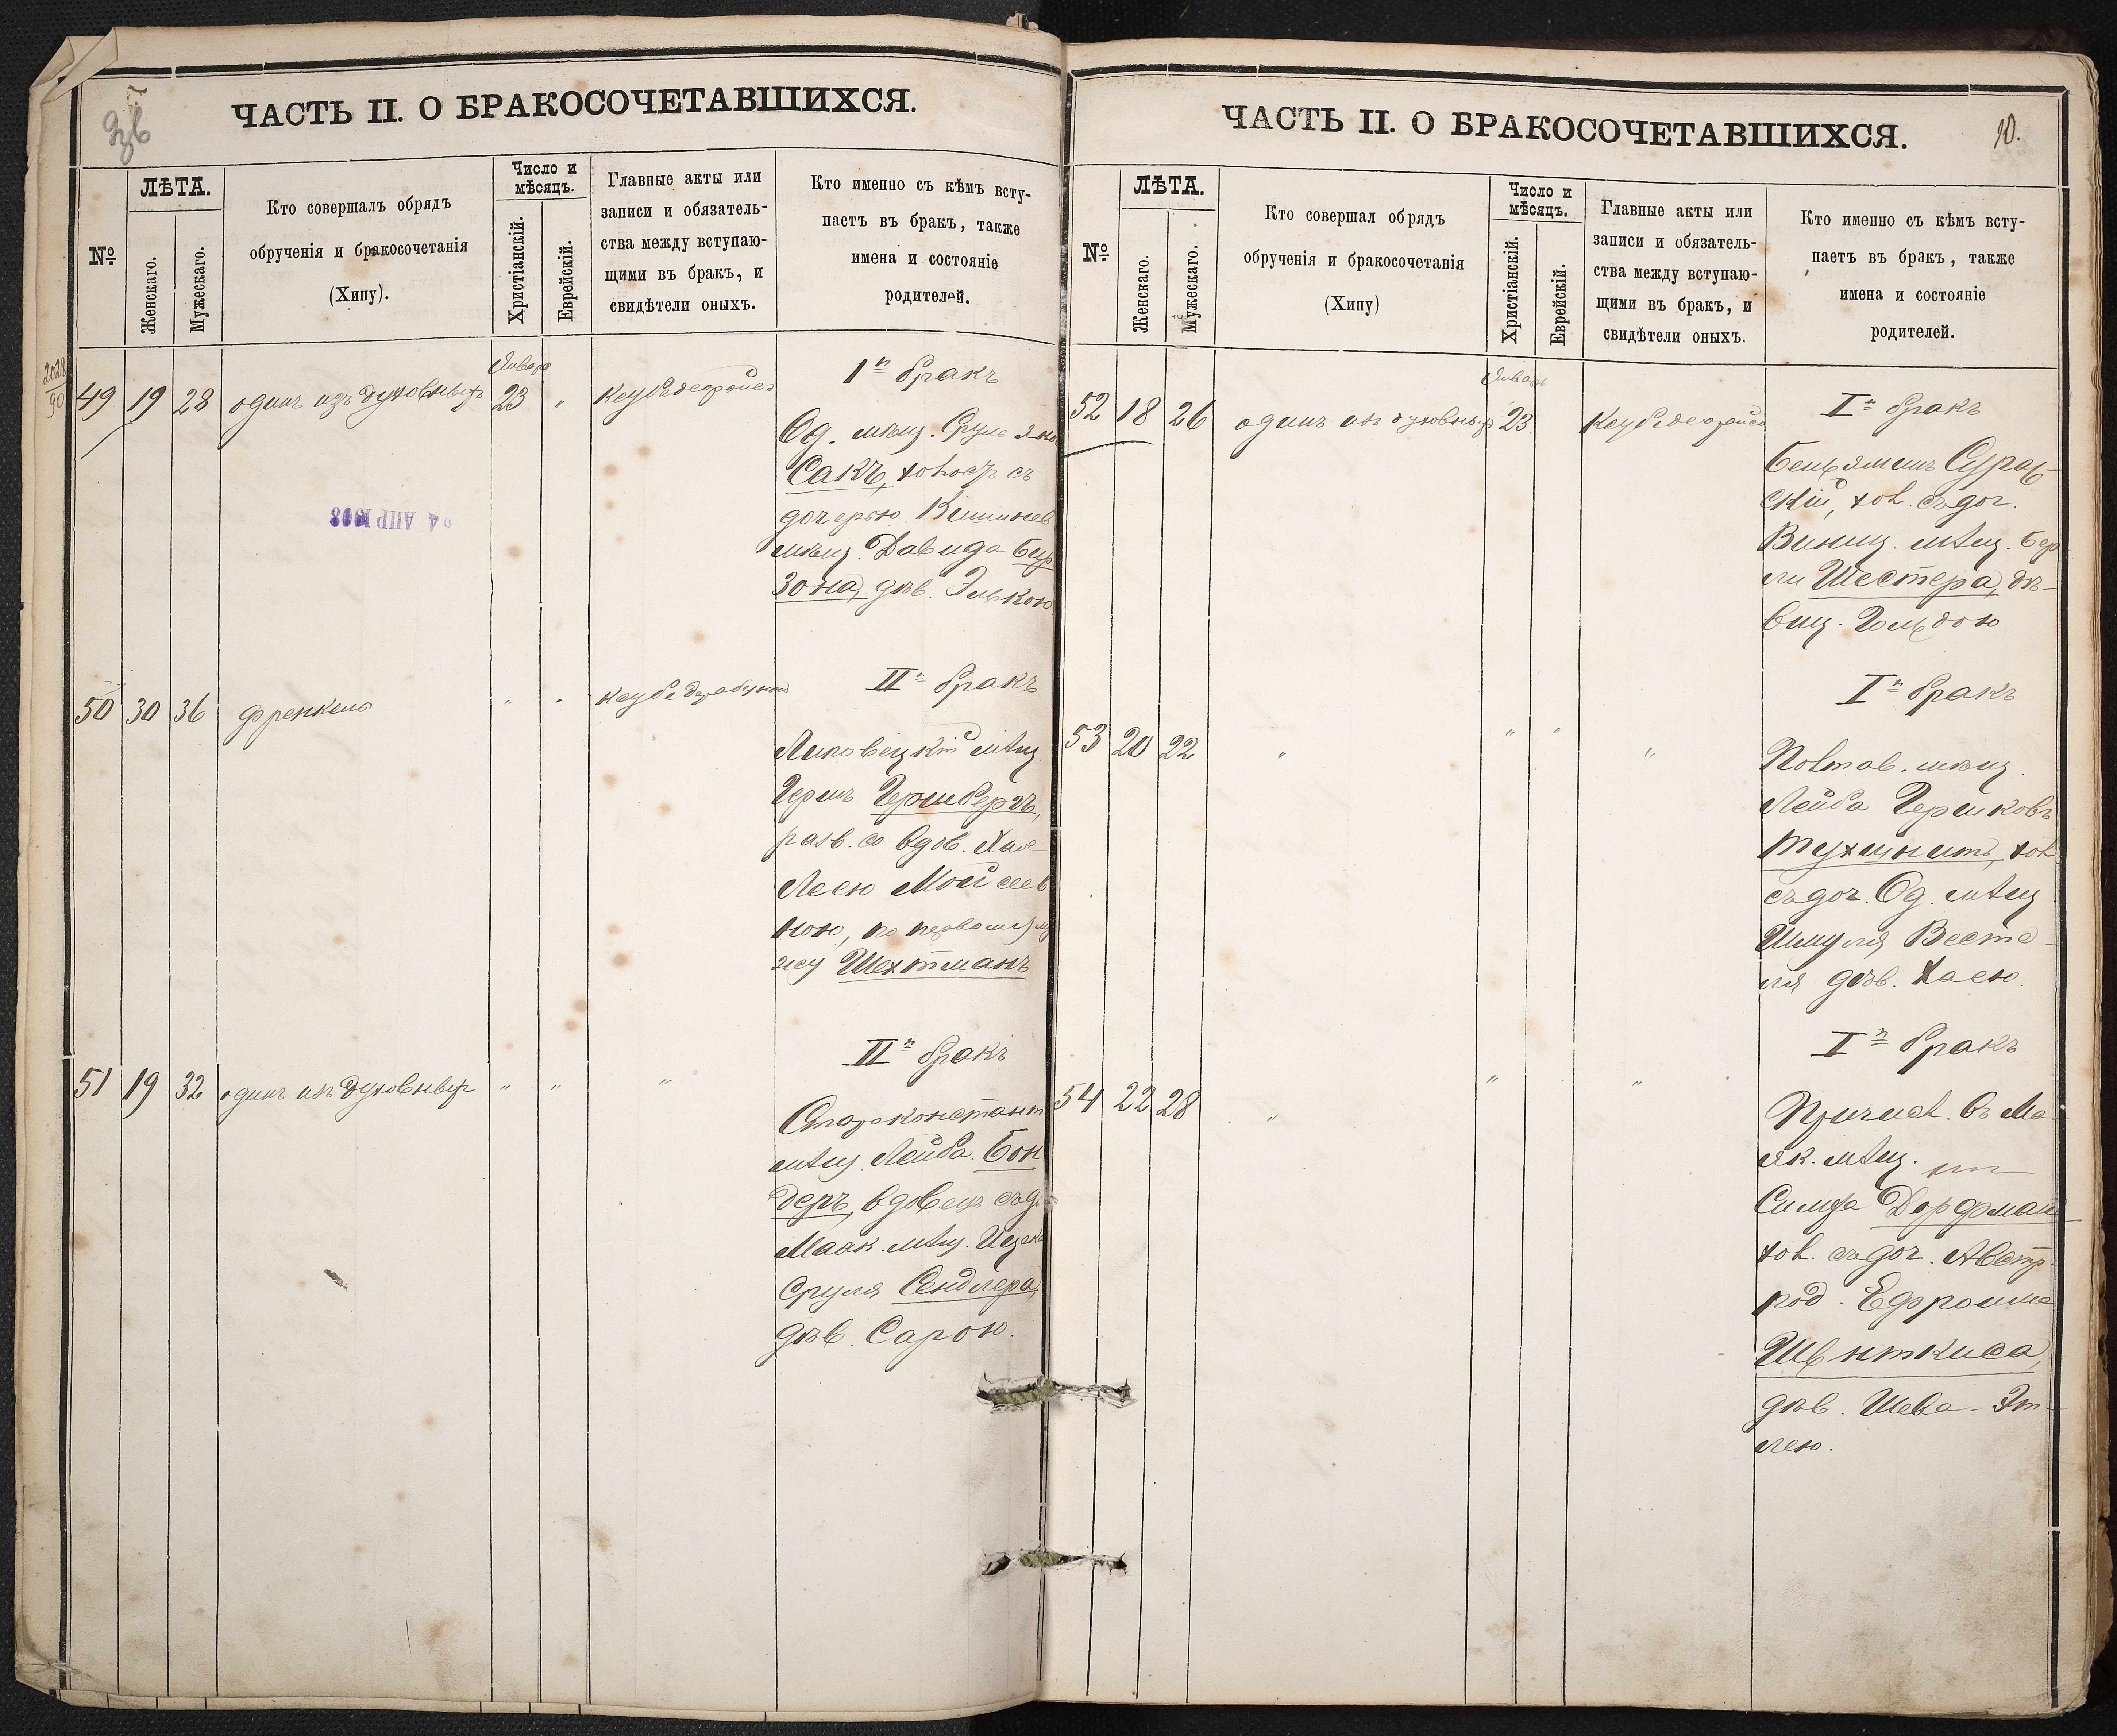 ЧАСТЬ II. О БРАКОСОЧЕТАВШИХСЯ.
№
ЛѢТА.
Женскаго.
Мужескаго.
Кто совершалъ обрядъ
обрученія и бракосочетанія
(Хипу).
Число и
мѣсяцъ.
Христіанскій.
Еврейскій.
Главные акты или
записи и обязатель-
ства между вступаю-
щими въ бракъ, и
свидѣтели оныхъ.
Кто именно съ кѣмъ всту-
паетъ въ бракъ, также
имена и состояніе
родителей.
2028
90
49 19 28 одинъ изъ духовныхъ
Январ
23 "
Iй бракъ
Од. мѣщ. Сруль
Сакъ, холост съ
дочерью Кишинев
мѣщ. Давида Бир
зона, дѣв. Элькою
24 АПР 1903
50 30 36 Френкель " "
IIй бракъ
Липовецкій мѣщ
Герш Гершбергъ,
разв. со вдов. Хая
Леею Моисеев
ною, по первому му
жу Шехтманъ
51 19 32 одинъ изъ духовныхъ " " "
IIй бракъ
Староконстант
мѣщ. Лейба Бон
деръ, вдовецъ съ д
Маяк. мѣщ.
Сруля Сендлера,
дѣв. Сарою.
ЧАСТЬ II. О БРАКОСОЧЕТАВШИХСЯ.
10.
№
ЛѢТА.
Женскаго.
Мужескаго.
Кто совершал обрядъ
обрученія и бракосочетанія
(Хипу)
Число и
мѣсяцъ.
Христіанскій.
Еврейскій.
Главные акты или
записи и обязатель-
ства между вступаю-
щими въ бракъ, и
свидѣтели оныхъ.
Кто именно съ кѣмъ всту-
паетъ въ бракъ, также
имена и состояніе
родителей.
52 18 26 одинъ изъ духовныхъ
Январь
23
Iй бракъ
Беньяминъ Сураж-
скій, хол. съ доч.
Винниц. мѣщ. Бер
ли Шестера, дѣ-
виц. Гольдою
53 20 22 " " " "
Iй бракъ
Полтав. мѣщ.
Лейба Гершковъ
Тухшнитъ, хол
съ доч. Од. мѣщ
Шмуля Весте-
ля дѣв. Хаею.
54 22 28 " " "
Iй бракъ
Причисл. въ Ма-
як. мѣщ.
Симха Дорфман
хол. съ доч. Австр.
под. Ефроима
дѣв. Шева-Эт-
лею.